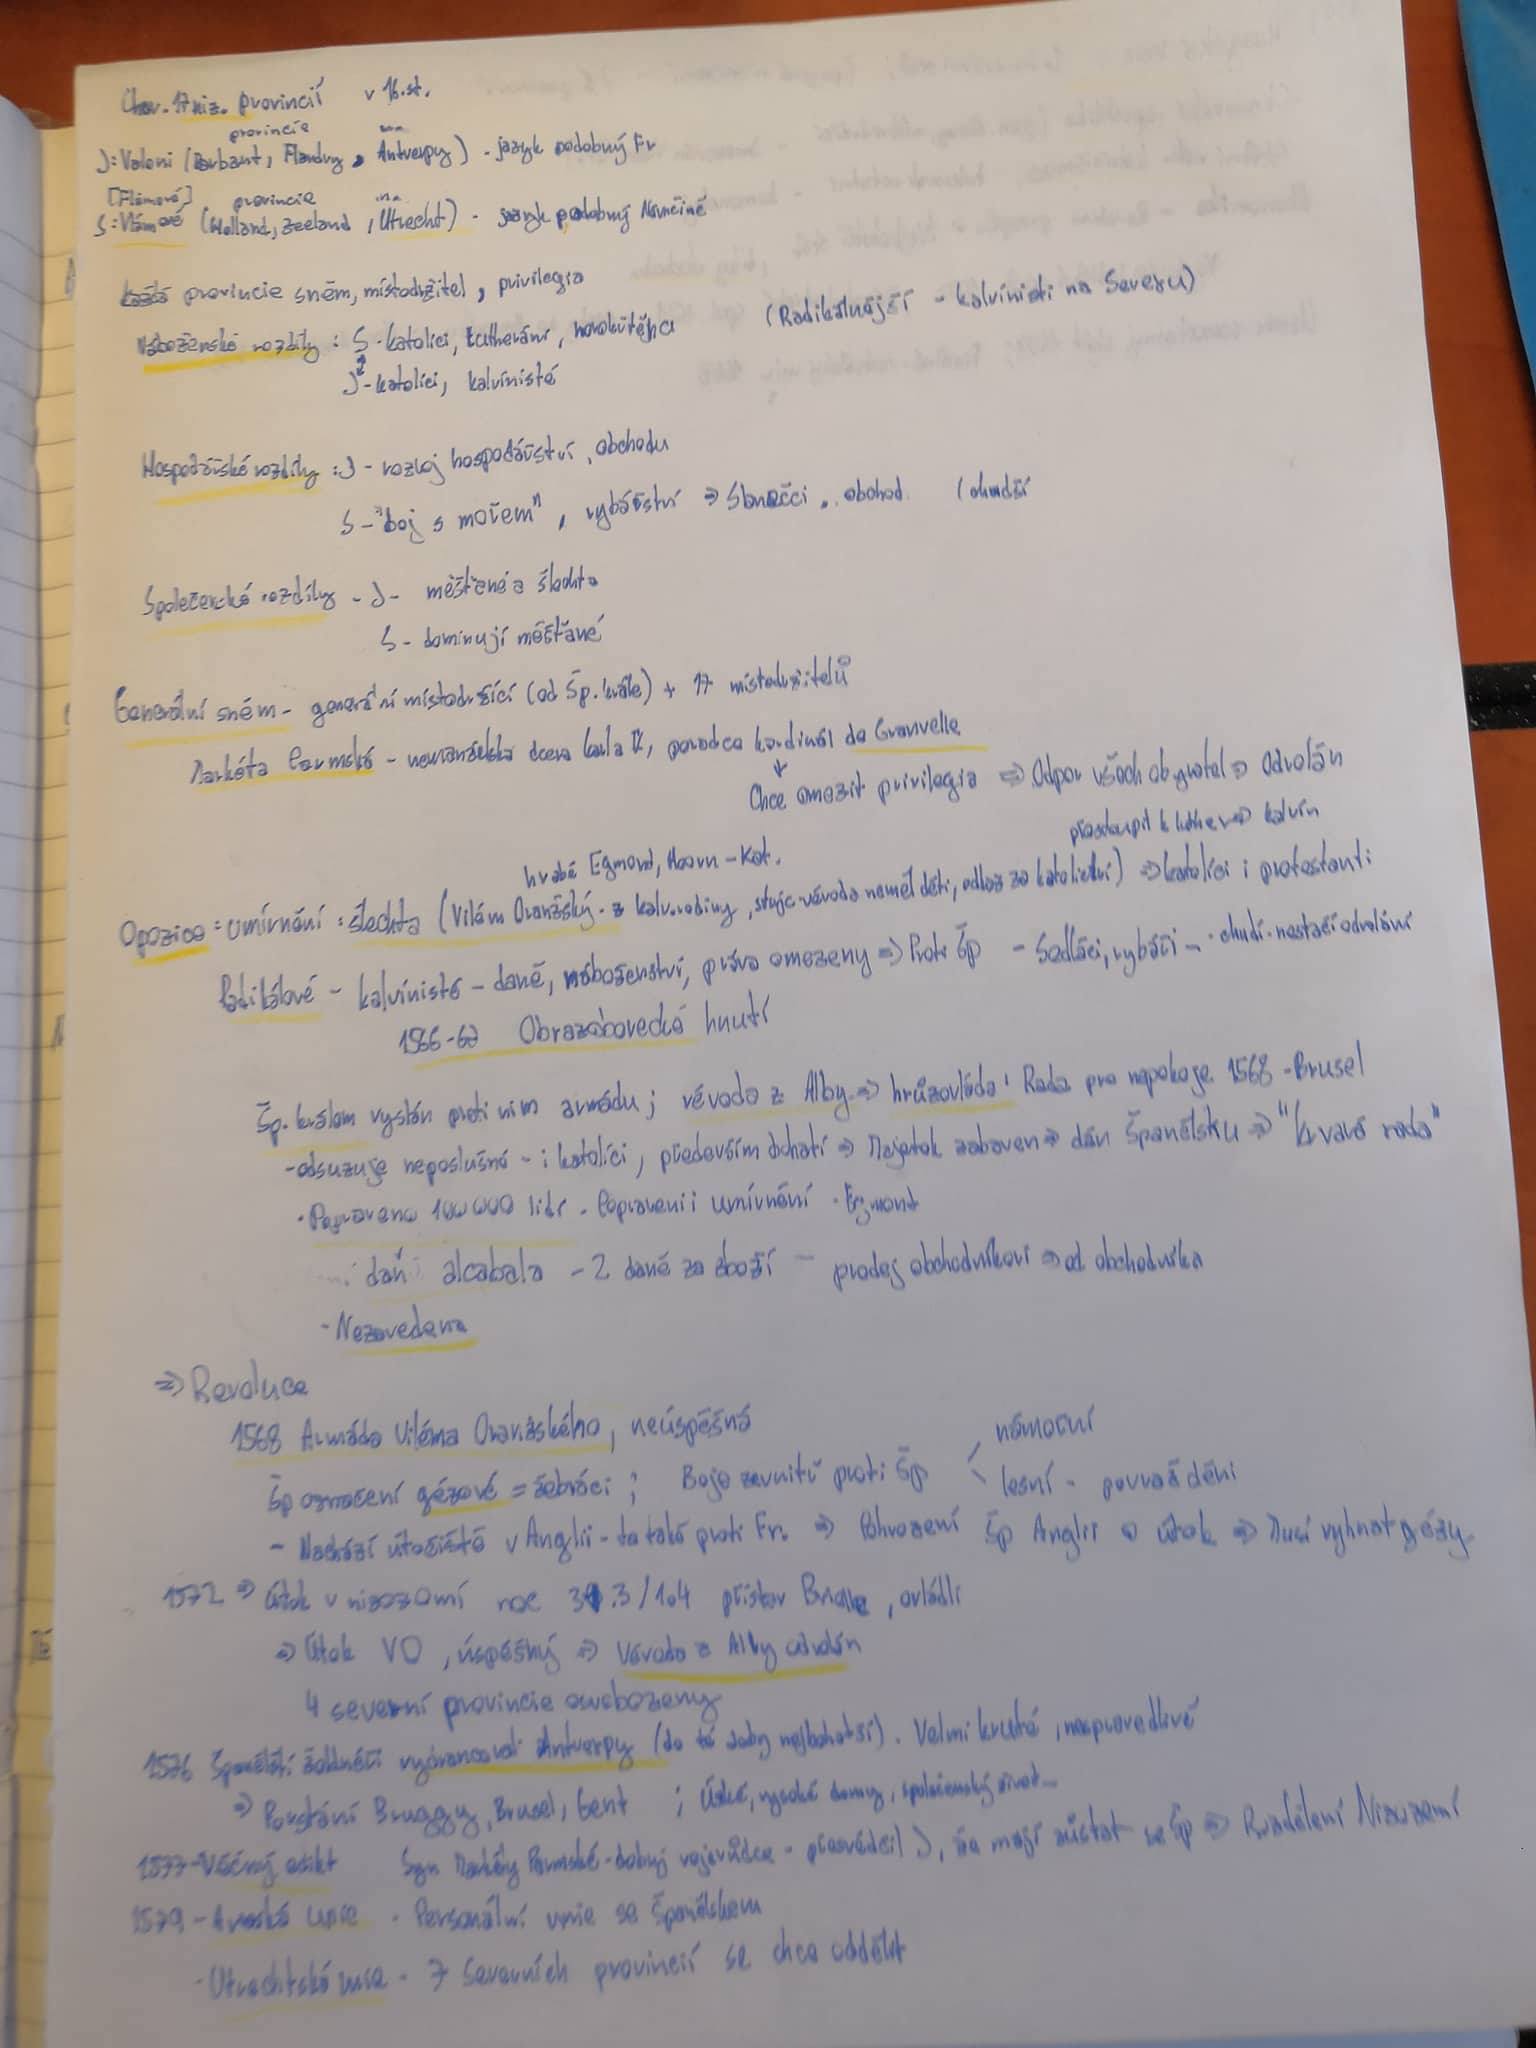 Char. 17 niz. provincií v 16. st.
provincie
J: Valoni (Barbant, Flandry, Antverpy) - jazyk podobný Fr
[Flámové] provincie
S: Vlámové (Holland, Zeeland, Utrecht) - jazyk podobný Němčině
každá provincie sněm, místodržitel, privilegia
Náboženské rozdíly: S - katolíci, lutheráni, novokřtěnci (Radikálnější - kalvinisti na Severu)
J - katolíci, kalvinisté
Hospodářské rozdíly: J - rozvoj hospodářství, obchodu
S - "boj s mořem", rybářství ⇒ Sbn obchod. (chudší
Společenské rozdíly - J - měšťané a šlechta
S - dominují měšťané
Generální sněm - generální místodržící (od Šp. krále) + 17 místodržitelů
Markéta Parmská - nemanželská dcera Karla V, poradce kardinál de Granvelle
Chce omezit privilegia ⇒ Odpor všech obyvatel ⇒ odvolán
hrabě Egmond, Hoorn - Kat. přestoupil k luther ⇒ kalvín
Opozice = umírnění: šlechta (Vilém Oranžský - z kalv. rodiny, strýc vévoda neměl děti, odkaz za katolictví) ⇒ katolíci i protestanti
Radikálové - kalvinisté - daně, náboženství, práva omezeny ⇒ Proti Šp - Sedláci, rybáři - chudí - nestačí odvolání
1566-67 Obrazoborecké hnutí
Šp. králem vyslán proti nim armádu; vévoda z Alby ⇒ hrůzovláda: Rada pro nepokoje 1568 - Brusel
- odsuzuje neposlušné - i katolíci, především bohatí ⇒ Majetek zabaven ⇒ dán Španělsku ⇒ "Krvavá rada"
- Popraveno 100 000 lidí - Popraveni i umírnění - Egmont
daň: alcabala - 2 daně za zboží - prodej obchodníkovi ⇒ od obchodníka
- Nezavedena
⇒ Revoluce
1568 Armáda Viléma Oranžského, neúspěšná
námořní
Šp označení gézové = žebráci; Boje zevnitř proti Šp < lesní - povraždění
- Nachází útočiště v Anglii - ta také proti Fr. ⇒ Pohrození Šp Anglii o útok ⇒ Musí vyhnat gézy
1572 ⇒ Útok v nizozemí noc 31.3/1.4 přístav Brielle, ovládli
⇒ Útok VO, úspěšný ⇒ Vévoda z Alby odvolán
4 severní provincie osvobozeny
1576 Španělští žoldnéři vydrancovali Antverpy (do té doby nejbohatší). Velmi kruté, nespravedlivé
⇒ Povstání Bruggy, Brusel, Gent ; Úzké, vysoké domy, společenský život...
1577 - Věčný edikt Syn Markéty Parmské - dobrý vojevůdce - přesvědčil J, že mají zůstat se Šp ⇒ Rozdělení Nizozemí
1579 - Araská unie - Personální unie se Španělskem
- Utrechtská unie - 7 Severních provincií se chce oddělit